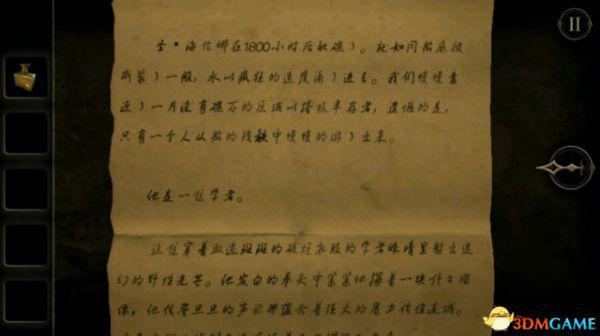 圣·海伦娜在1800小时后触礁了。就如同船底被
撕裂了一般，水以疯狂的速度涌了进去。我们慢慢靠
近了一片没有礁石的区域以搭救幸存者，遗憾的是，
只有一个人从船的残骸中慢慢的游了出来。
他是一位学者。
这位穿着血迹斑斑的破烂衣服的学者眼睛里射出迷
幻的野性光芒。他发白的拳头中紧紧地攥着一块什么雕
像，他信誓旦旦的声称那蕴含着强大的魔力
3DMGAME